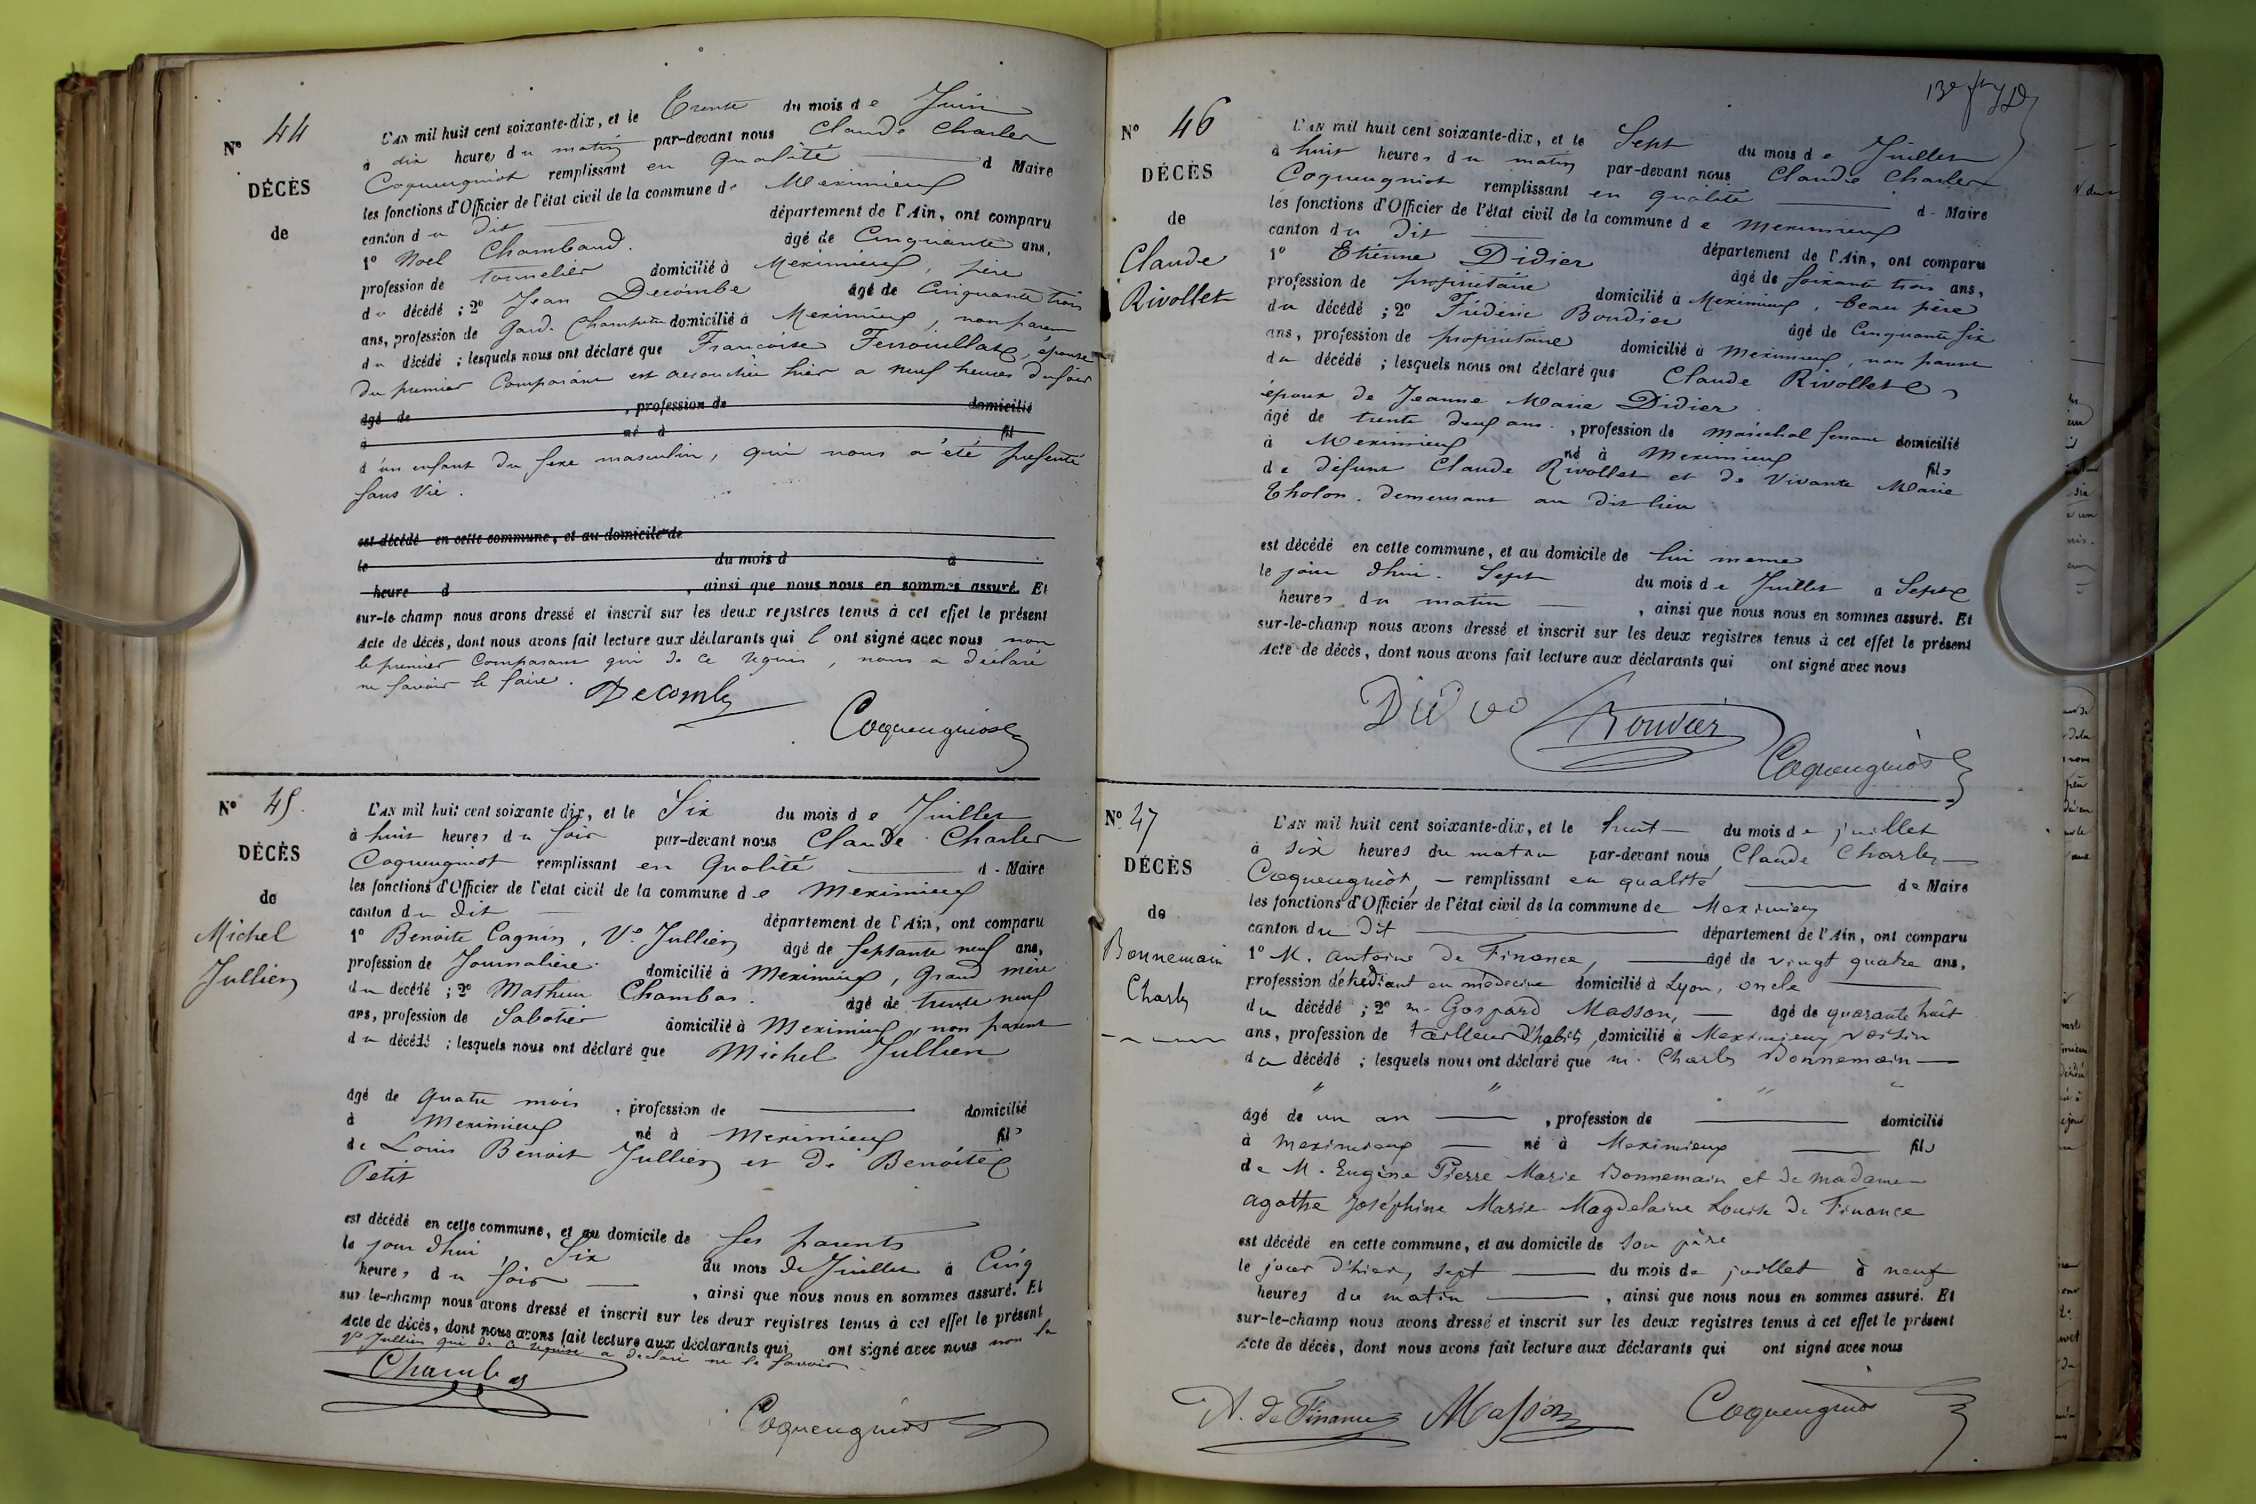 N° 44
DÉCÈS
de
L'AN mil huit cent soixante-dix, et le Trente du mois de Juin
à dix heures du matin par-devant nous Claude Charles
Coqueugniot remplissant en qualité d Maire
les fonctions d'Officier de l'état civil de la commune de Meximieux
canton du dit département de l'Ain, ont comparu
1° Noel Chambaud. âgé de Cinquante ans,
profession de tonnelier domicilié à Meximieux, père
du décédé ; 2° Jean Decombe âgé de Cinquante trois
ans, profession de Garde Champêtre domicilié à Meximieux, non parent
du décédé ; lesquels nous ont déclaré que Françoise Ferrouillat, épouse
du premier Comparant est accouchée hier a neuf heures du soir
âgé de , profession de domicilié
à né d fil
d'un enfant du sexe masculin, qui nous a été présenté
sans vie.
est décédé en cette commune, et au domicile de
le du mois d à
heure d , ainsi que nous nous en sommes assuré. Et
sur-le champ nous avons dressé et inscrit sur les deux registres tenus à cet effet le présent
Acte de décès, dont nous avons fait lecture aux déclarants qui l'ont signé avec nous non
le premier Comparant qui de ce requis, nous a déclaré
ne savoir le faire.
Decombe
Coqueugniot
N° 45.
DÉCÈS
de
Michel
Jullien
L'AN mil huit cent soixante dix, et le Six du mois de Juillet
à huit heures du soir par-devant nous Claude Charles
Coqueugniot remplissant en Qualité d - Maire
les fonctions d'Officier de l'état civil de la commune de Meximieux
canton du dit département de l'Ain, ont comparu
1° Benoite Cagnin, Ve Jullien âgé de Septante neuf ans,
profession de Journalière. domicilié à Meximieux, Grand mère
du décédé ; 2° Mathieu Chambas. âgé de trente neuf
ans, profession de Sabotier domicilié à Meximieux, non parent
du décédé ; lesquels nous ont déclaré que Michel Jullien
âgé de quatre mois , profession de domicilié
à Meximieux né à Meximieux fils
de Louis Benoit Jullien et de Benoite
Petit
est décédé en cette commune, et au domicile de ses parents
le jour d'hui, Six du mois de Juillet à Cinq
heures du soir , ainsi que nous nous en sommes assuré. Et
sur-le-champ nous avons dressé et inscrit sur les deux registres tenus à cet effet le présent
Acte de décès, dont nous avons fait lecture aux déclarants qui ont signé avec nous non la
Ve Jullien qui de ce requise a déclaré ne le savoir.
Chambas
Coqueugniot
N° 46
DÉCÈS
de
Claude
Rivollet
L'AN mil huit cent soixante-dix, et le Sept du mois de Juillet
à huit heures du matin par-devant nous Claude Charles
Coqueugniot remplissant en qualité d - Maire
les fonctions d'Officier de l'état civil de la commune de Meximieux
canton du dit département de l'Ain, ont comparu
1° Etienne Didier âgé de soixante trois ans,
profession de propriétaire domicilié à Meximieux, beau père
du décédé ; 2° Frédéric Boudier âgé de Cinquante six
ans, profession de propriétaire domicilié à Meximieux, non parent
du décédé ; lesquels nous ont déclaré que Claude Rivollet
époux de Jeanne Marie Didier.
âgé de trente deux ans. , profession de maréchal ferrant domicilié
à Meximieux né à Meximieux fils
de défunt Claude Rivollet et de vivante Marie
Tholon. demeurant au dit lieu
est décédé en cette commune, et au domicile de lui meme
le jour d'hui. Sept du mois de Juillet a Sept
heures du matin , ainsi que nous nous en sommes assuré. Et
sur-le-champ nous avons dressé et inscrit sur les deux registres tenus à cet effet le présent
Acte de décès, dont nous avons fait lecture aux déclarants qui ont signé avec nous
Coqueugniot
N° 47
DÉCÈS
de
Bonnemain
Charles
L'AN mil huit cent soixante-dix, et le huit du mois de juillet
à six heures du matin par-devant nous Claude Charles
Coqueugniot, remplissant en qualité de Maire
les fonctions d'Officier de l'état civil de la commune de Meximieux
canton du dit département de l'Ain, ont comparu
1° M. Antoine de Finance, âgé de vingt quatre ans,
profession d'étudiant en médecine domicilié à Lyon, oncle
du décédé ; 2° m. Gaspard Masson, âgé de quarante huit
ans, profession de tailleur d'habits, domicilié à Meximieux voisin
du décédé ; lesquels nous ont déclaré que m. Charles Bonnemain
" " " "
âgé de un an , profession de domicilié
à Meximieux né à Meximieux fils
de M. Eugène Pierre Marie Bonnemain et de madame
agathe Joséphine Marie Magdelaine Louise de Finance
est décédé en cette commune, et au domicile de son père
le jour d'hier, sept du mois de juillet à neuf
heures du matin , ainsi que nous nous en sommes assuré. Et
sur-le-champ nous avons dressé et inscrit sur les deux registres tenus à cet effet le présent
Acte de décès, dont nous avons fait lecture aux déclarants qui ont signé avec nous
A. de Finance Masson Coqueugniot